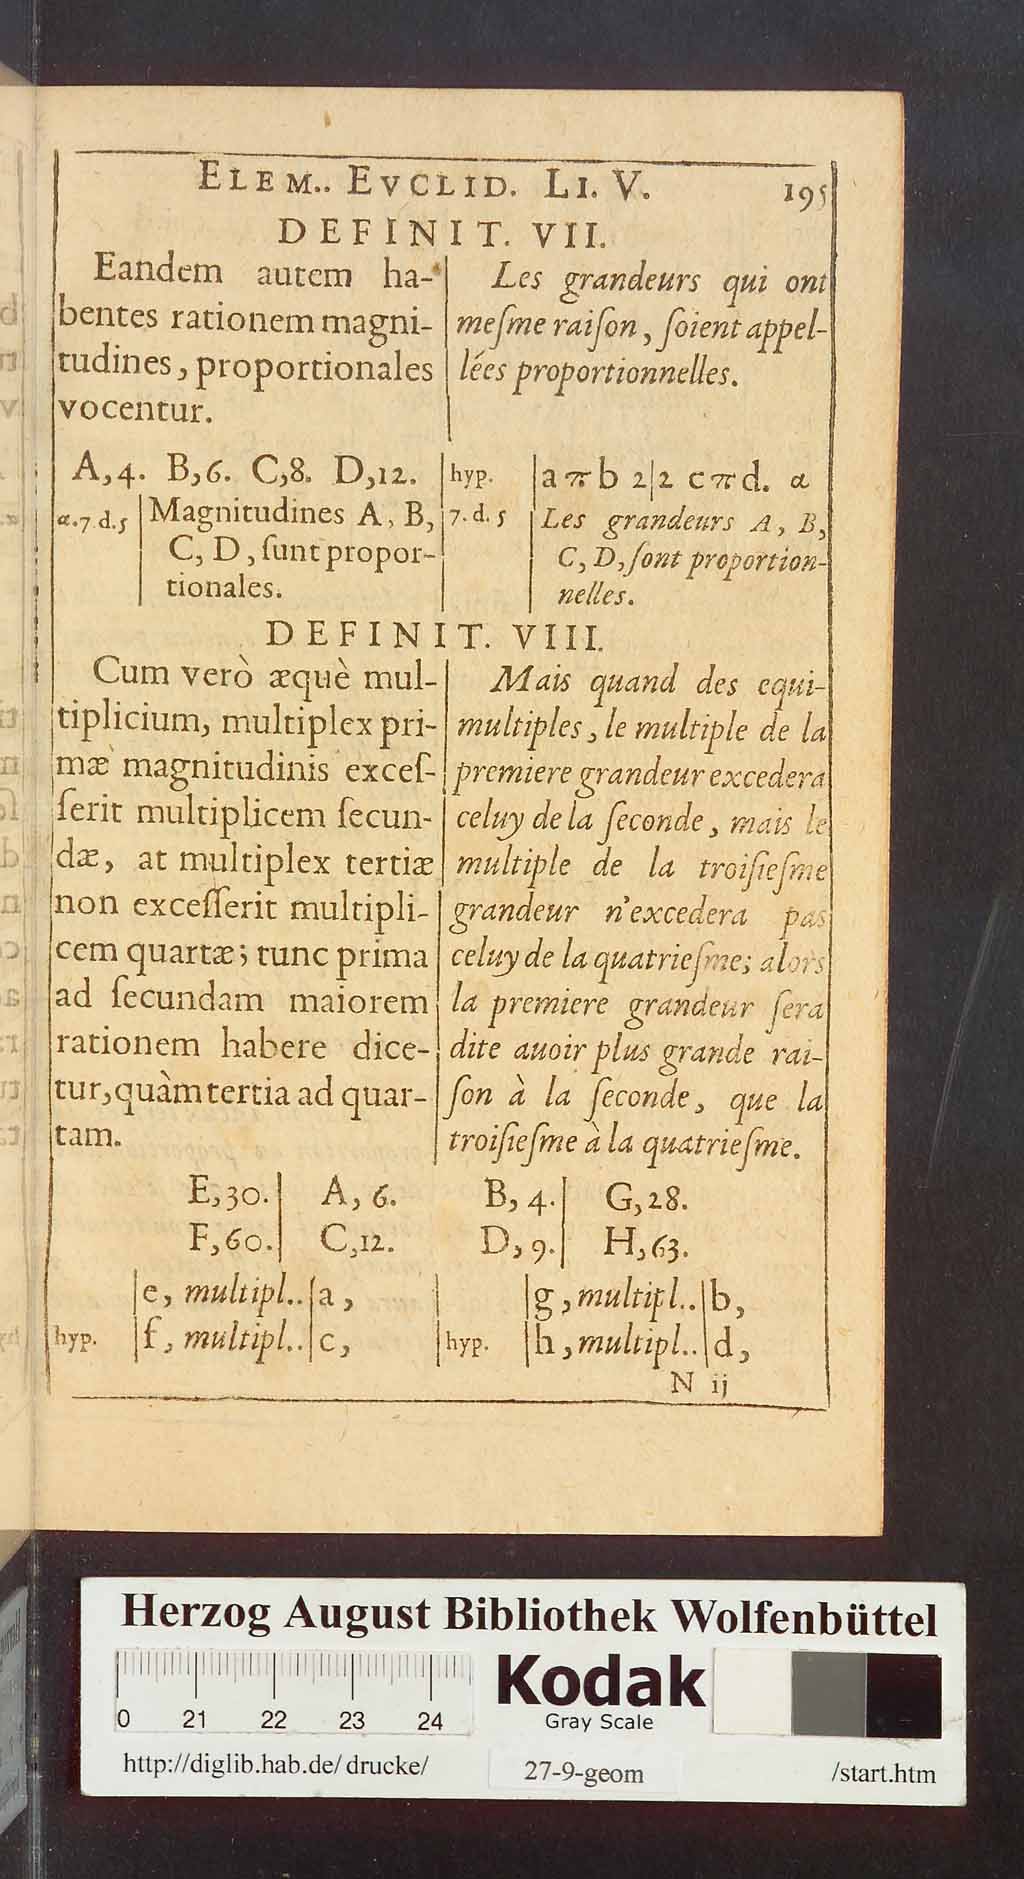 ELEM.. EVCLID. LI. V. 195
DEFINIT. VII.
Eandem autem ha-
bentes rationem magni-
tudines, proportionales
vocentur.
Les grandeurs qui ont
meſme raiſon, ſoient appel-
lées proportionnelles.
A,4. B,6. C,8. D,12.
hyp. | a π b 2|2 c π d. α
α.7.d.5 | Magnitudines A, B,
C, D, ſunt propor-
tionales.
7.d.5 | Les grandeurs A, B,
C, D, ſont proportion-
nelles.
DEFINIT. VIII.
Cum verò æquè mul-
tiplicium, multiplex pri-
mæ magnitudinis exceſ-
ſerit multiplicem ſecun-
dæ, at multiplex tertiæ
non exceſſerit multipli-
cem quartæ; tunc prima
ad ſecundam maiorem
rationem habere dice-
tur, quàm tertia ad quar-
tam.
Mais quand des equi-
multiples, le multiple de la
premiere grandeur excedera
celuy de la ſeconde, mais le
multiple de la troiſieſme
grandeur n'excedera pas
celuy de la quatrieſme; alors
la premiere grandeur ſera
dite auoir plus grande rai-
ſon à la ſeconde, que la
troiſieſme à la quatrieſme.
E,30. | A, 6. B, 4. | G,28.
F,60. | C,12. D, 9. | H,63.
|e, multipl..|a, | |g, multipl..|b,
hyp. |f, multipl..|c, |hyp. |h, multipl..|d,
N ij
Herzog August Bibliothek Wolfenbüttel
0 21 22 23 24
Kodak
Gray Scale
http://diglib.hab.de/drucke/ 27-9-geom /start.htm